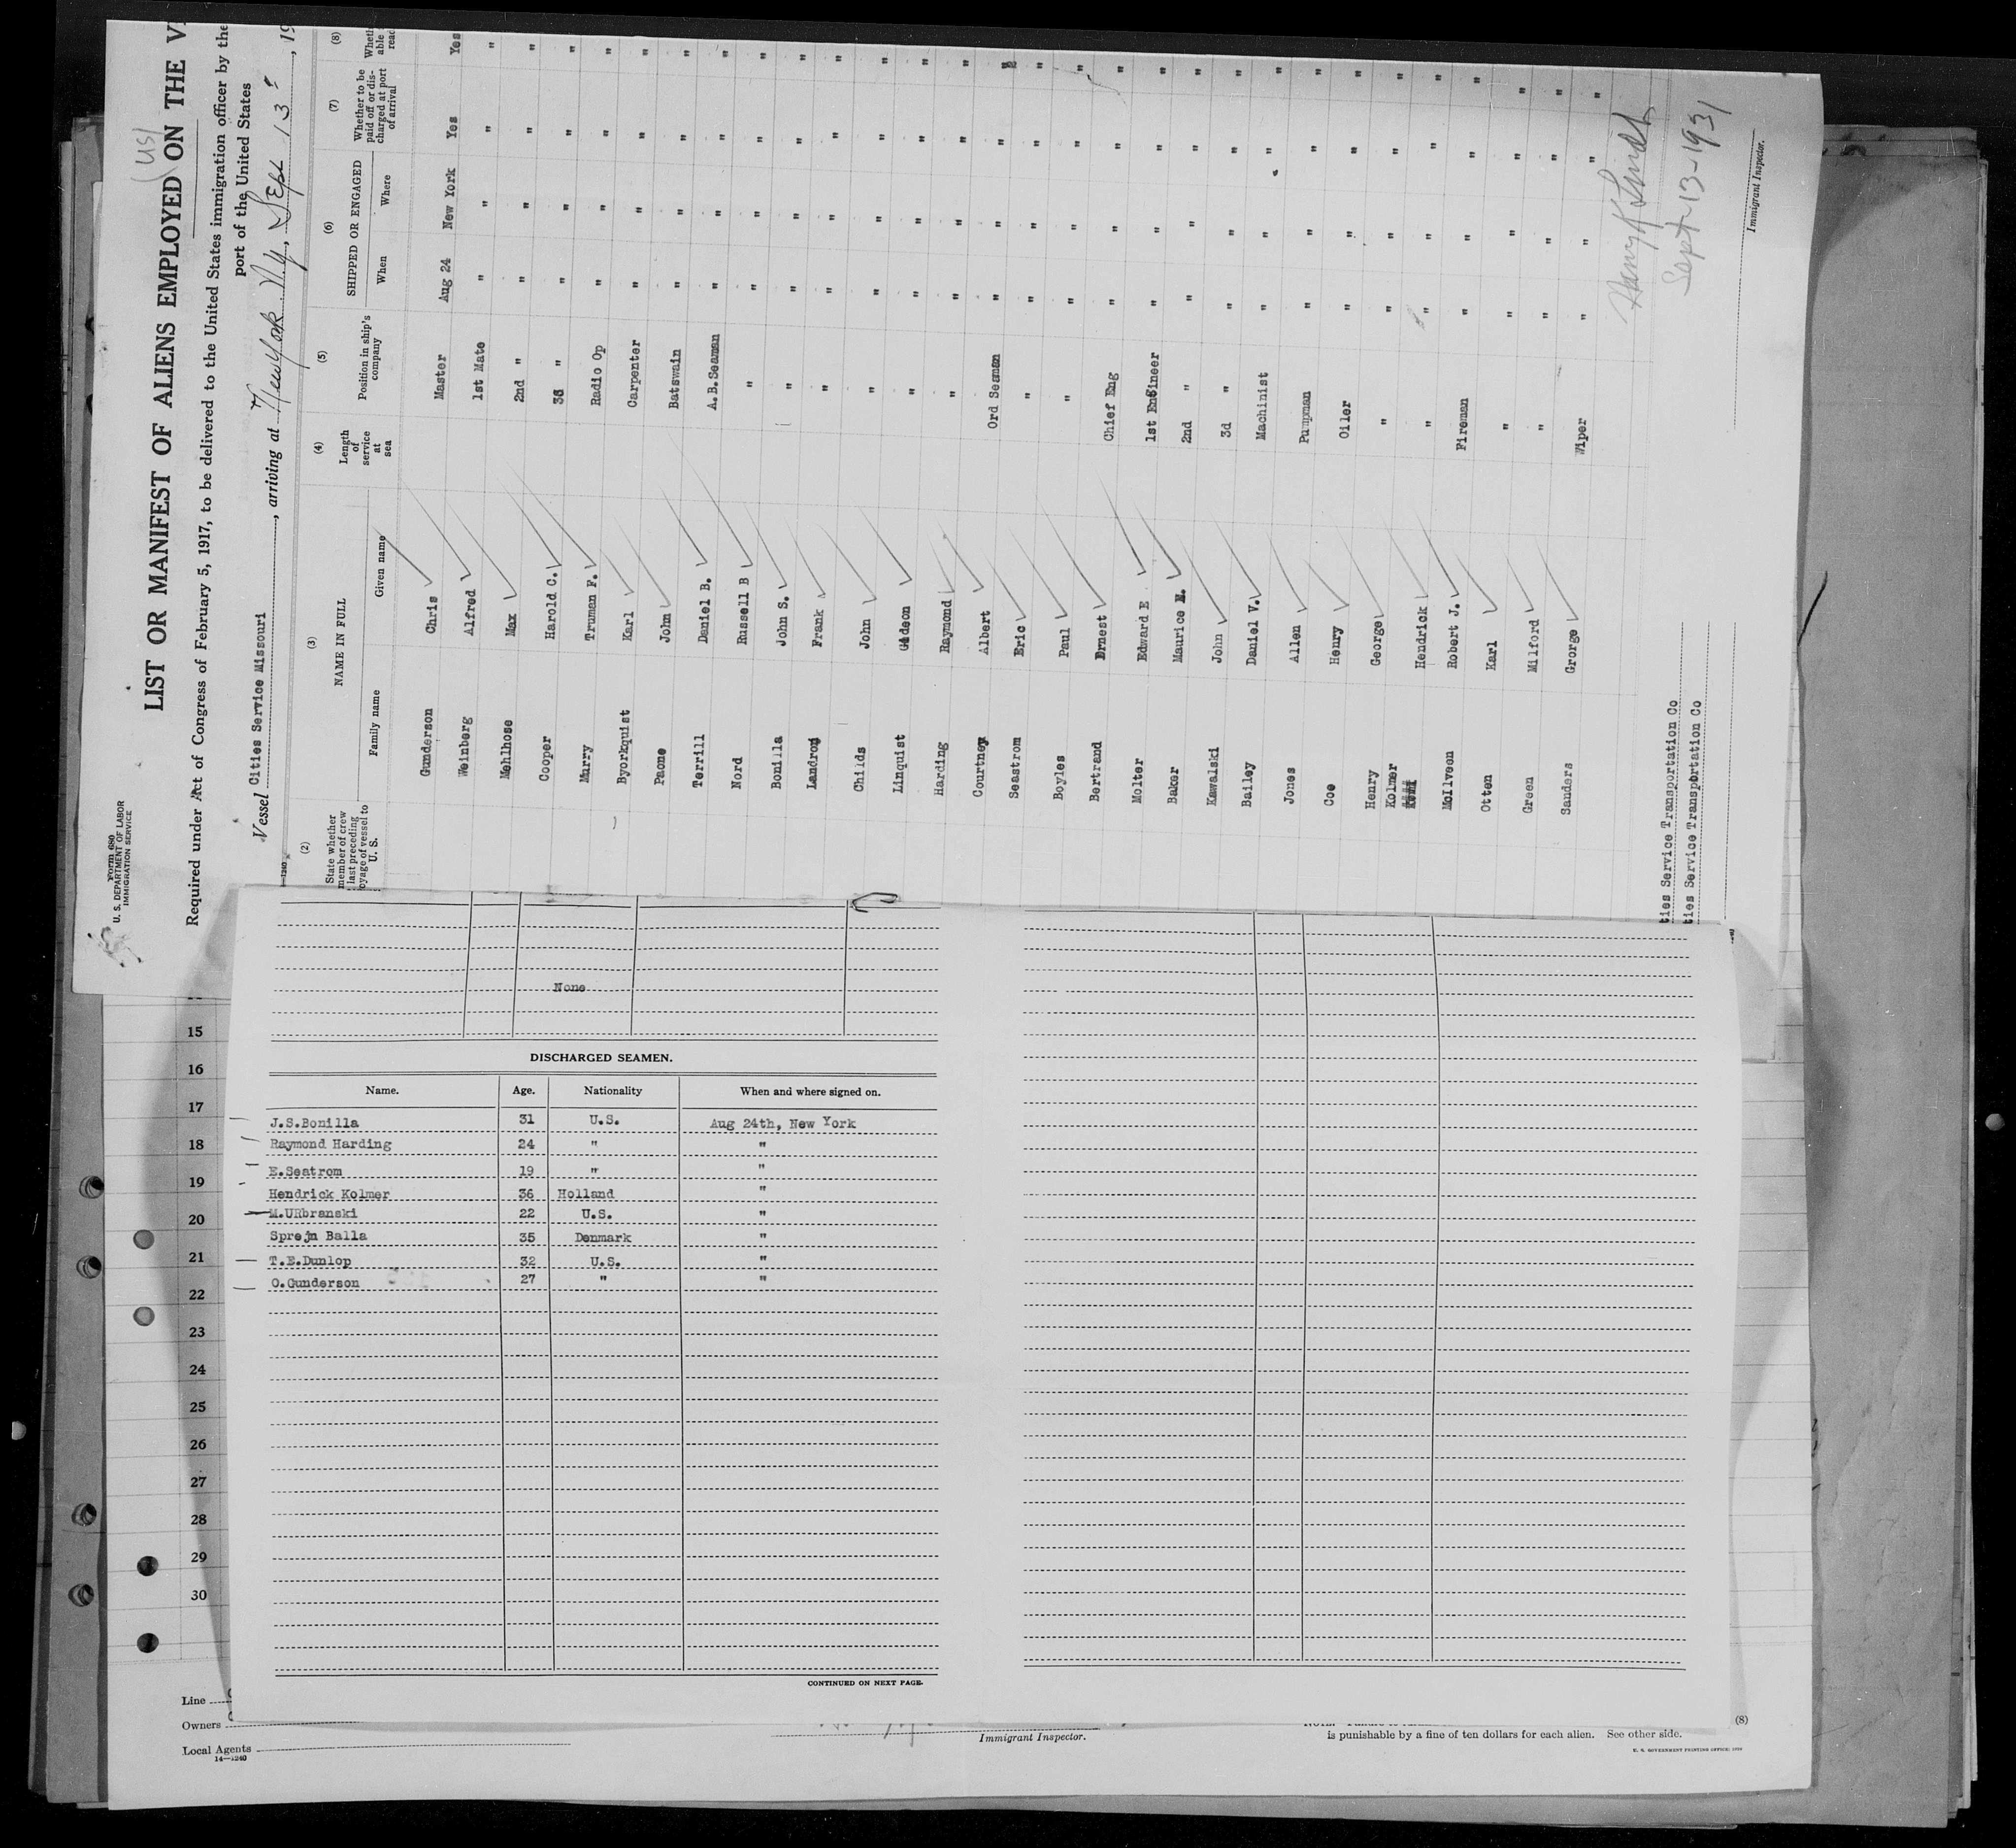 Form 680
U. S. DEPARTMENT OF LABOR
IMMIGRATION SERVICE
(US)
LIST OR MANIFEST OF ALIENS EMPLOYED ON THE
Required under Act of Congress of February 5, 1917, to be delivered to the United States immigration officer by the
port of the United States
Vessel Cities Service Missouri, arriving at New York N.Y, Sept 13, 19
(2) (3) (4) (5) (6) (7) (8)
State whether member of crew last preceding voyage of vessel to U. S.
NAME IN FULL
Family name Given name
Length of service at sea
Position in ship's company
SHIPPED OR ENGAGED
When Where
Whether to be paid off or discharged at port of arrival
Gunderson Chris Master Aug 24 New York Yes Yes
Weinberg Alfred 1st Mate " " " "
Mehlhose Max 2nd " " " " "
Cooper Harold C. 3d " " " " "
Murry Truman F. Radio Op " " " "
Byorkquist Karl Carpenter " " " "
Paone John Batswain " " " "
Terrill Daniel B. A.B.Seaman " " " "
Nord Russell B " " " " "
Bonilla John S. " " " " "
Landron Frank " " " " "
Childs John " " " " "
Linquist Gideon " " " " "
Harding Raymond " " " " "
Courtney Albert Ord Seaman " " " "
Seastrom Eric " " " " "
Boyles Paul " " " " "
Bertrand Ernest Chief Eng " " " "
Molter Edward E 1st Engineer " " " "
Baker Maurice M. 2nd " " " " "
Kawalski John 3d " " " "
Bailey Daniel V. Machinist " " " "
Jones Allen Pumpman " " " "
Coe Henry Oiler " " " "
Henry George " " " " "
Kolmer Hendrick " " " " "
McIlveen Robert J. Fireman " " " "
Otten Karl " " " " "
Green Milford " " " " "
Sanders Grorge Wiper " " " "
Sept 13-1931
Immigrant Inspector.
ties Service Transportation Co
ties Service Transportation Co
None
DISCHARGED SEAMEN.
Name. Age. Nationality When and where signed on.
J.S.Bonilla 31 U.S. Aug 24th, New York
Raymond Harding 24 " "
E.Seatrom 19 " "
Hendrick Kolmer 36 Holland "
M.URbranski 22 U.S. "
Sprejn Balla 35 Denmark "
T.E.Dunlop 32 U.S. "
O.Gunderson 27 " "
CONTINUED ON NEXT PAGE.
15
16
17
18
19
20
21
22
23
24
25
26
27
28
29
30
Line
Owners
Local Agents
14—1240
Immigrant Inspector.
is punishable by a fine of ten dollars for each alien. See other side.
(8)
U. S. GOVERNMENT PRINTING OFFICE: 1929